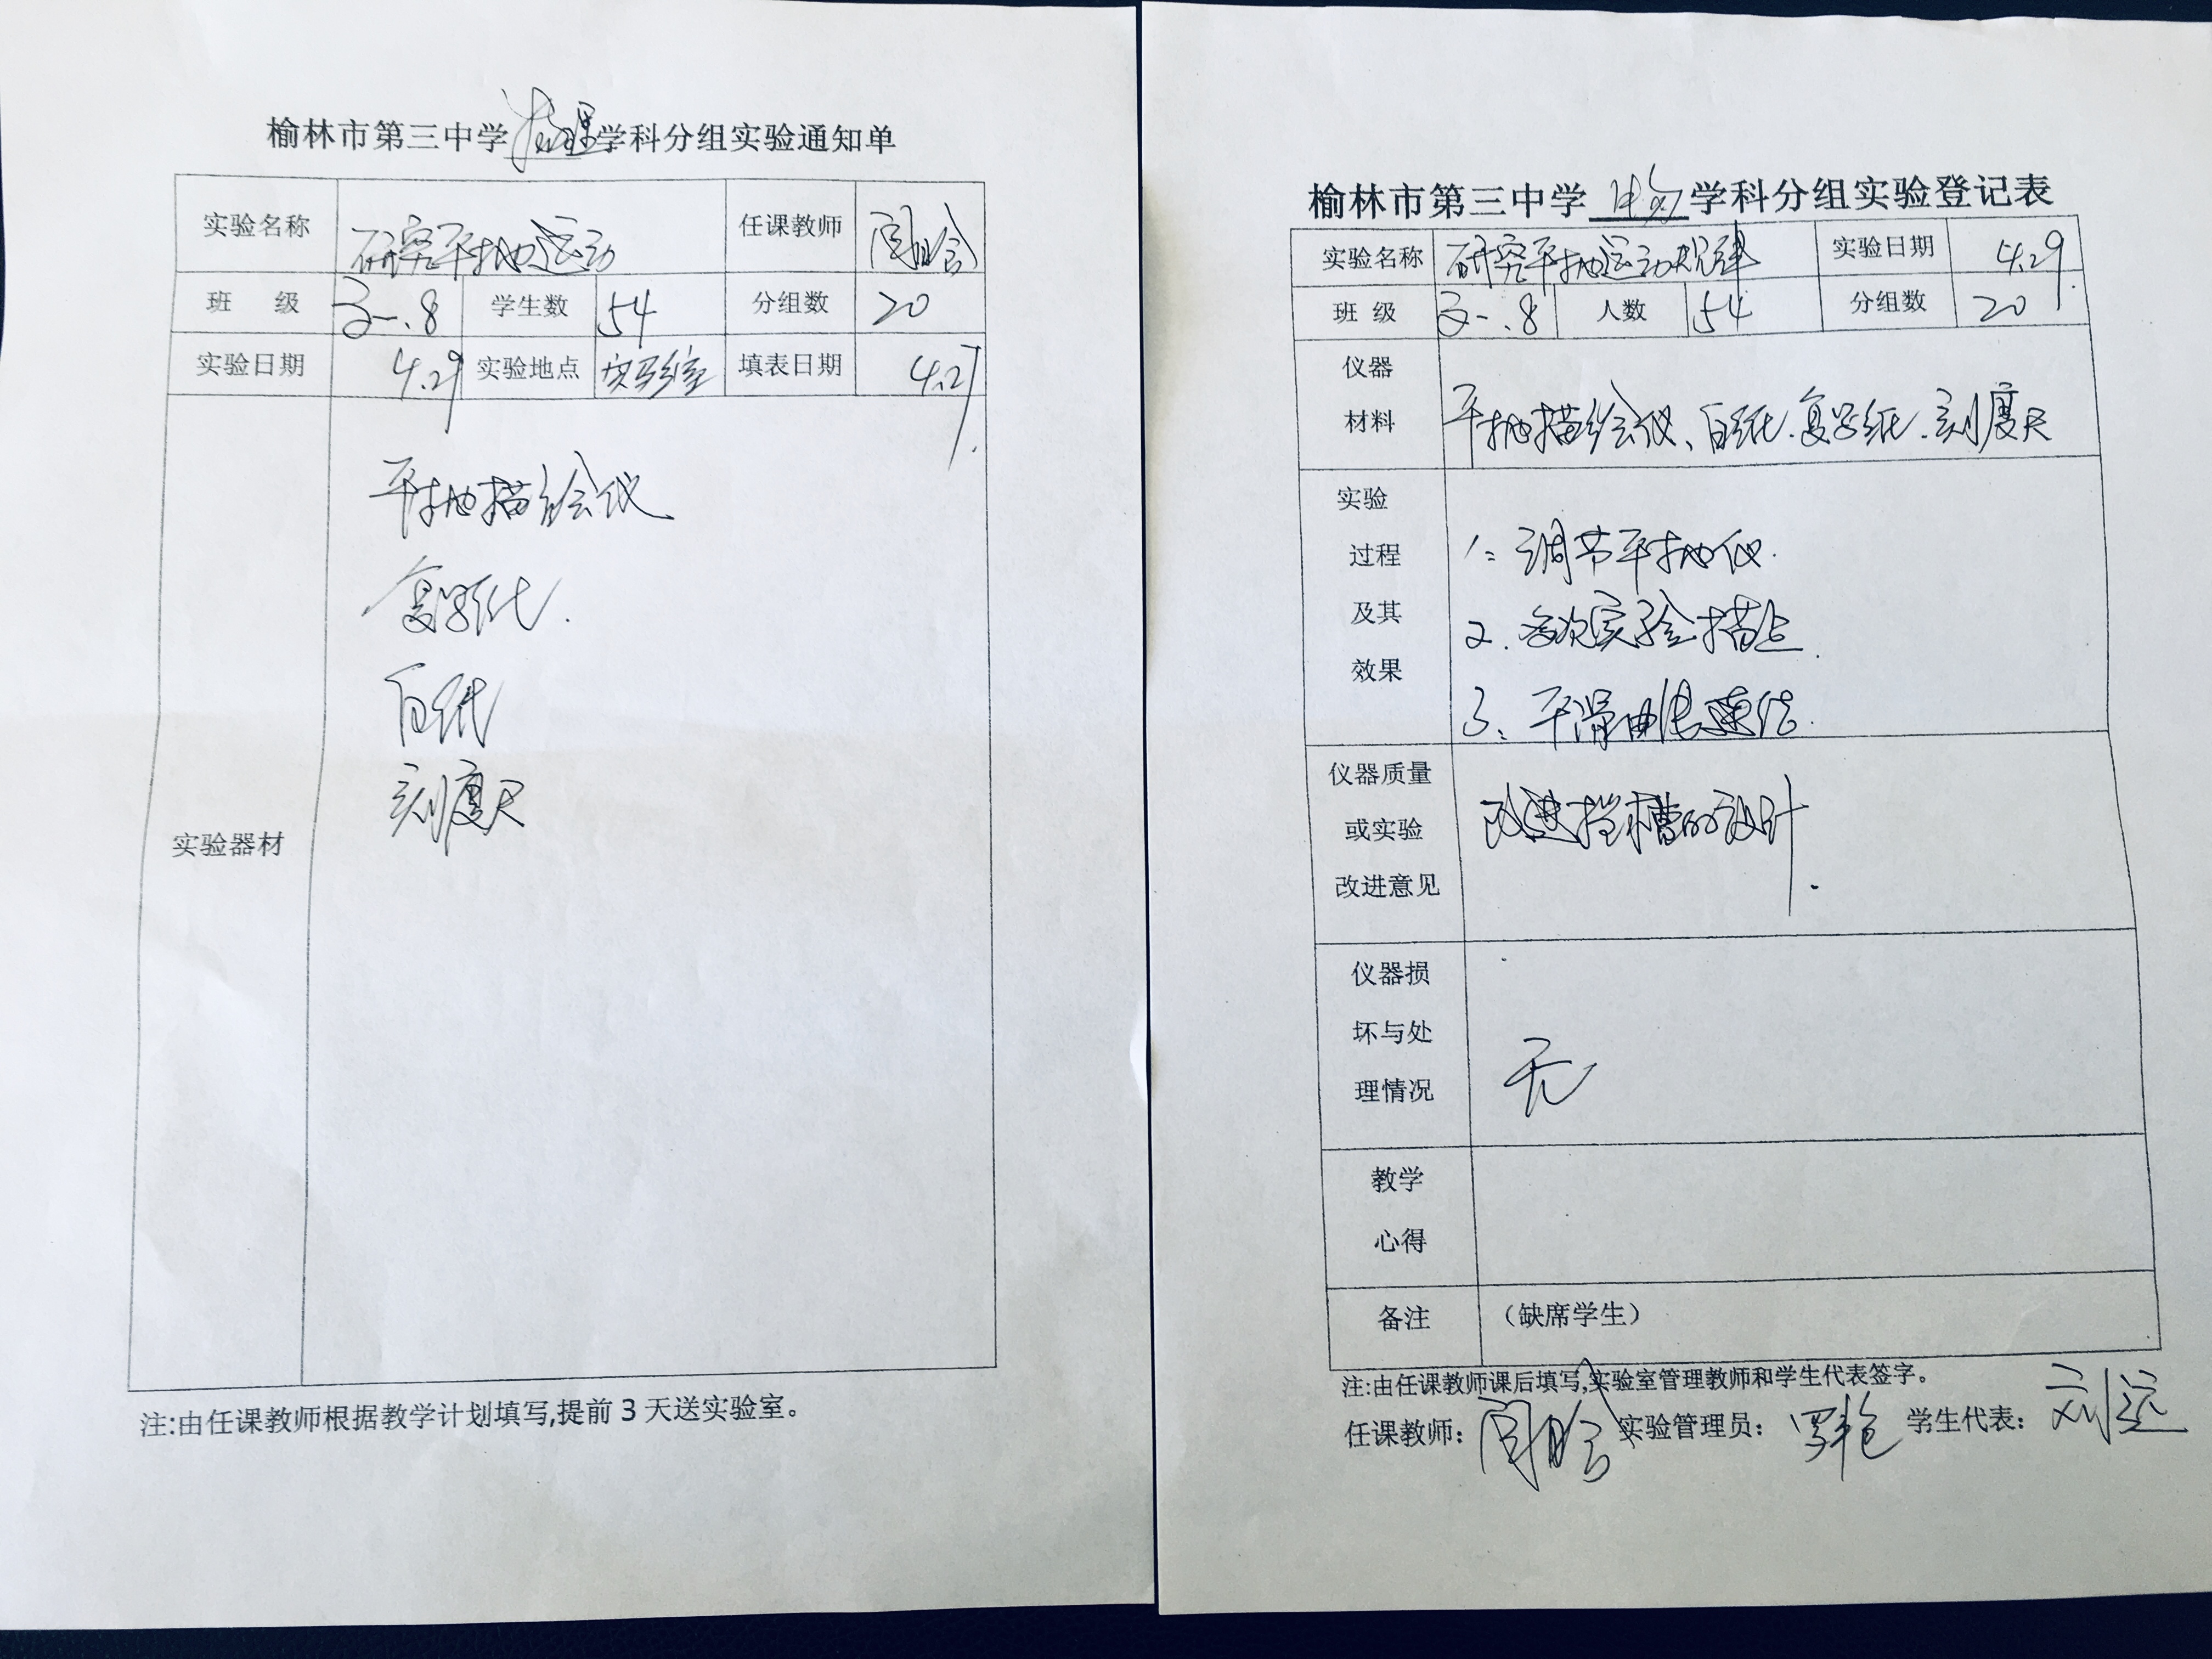 榆林市第三中学物理学科分组实验通知单
实验名称 研究平抛运动 任课教师
班 级 高一.8 学生数 54 分组数 20
实验日期 4.29 实验地点 实验室 填表日期 4.27
实验器材
平抛描绘仪
复写纸.
白纸
刻度尺
注:由任课教师根据教学计划填写,提前3天送实验室。
榆林市第三中学 学科分组实验登记表
实验名称 研究平抛运动规律 实验日期 4.29.
班 级 高一.8 人数 54 分组数 20
仪器
材料
平抛描绘仪、白纸.复写纸.刻度尺
实验
过程
及其
效果
1: 调节平抛仪.
2. 多次实验描点.
3: 平滑曲线连结.
仪器质量
或实验
改进意见
改进挡槽的设计.
仪器损
坏与处
理情况
无
教学
心得
备注 （缺席学生）
注:由任课教师课后填写,实验室管理教师和学生代表签字。
任课教师: 实验管理员: 学生代表: 刘远